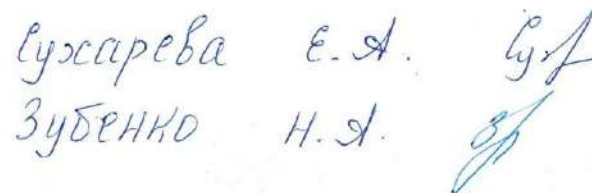 Сухарева Е.А. Сух
Зубенко Н.А.